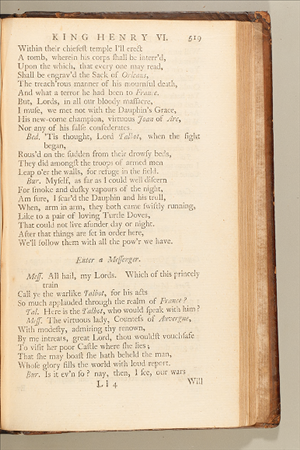 KING HENRY VI. 519
Within their chiefest temple I'll erect
A tomb, wherein his corps shall be interr'd,
Upon the which, that every one may read,
Shall be engrav'd the Sack of Orleans,
The treach'rous manner of his mournful death,
And what a terror he had been to France.
But, Lords, in all our bloody massacre,
I muse, we met not with the Dauphin's Grace,
His new-come champion, virtuous Joan of Arc,
Nor any of his false confederates.
Bed. 'Tis thought, Lord Talbot, when the fight
began,
Rous'd on the sudden from their drowsy beds,
They did amongst the troops of armed men
Leap o'er the walls, for refuge in the field.
Bur. Myself, as far as I could well discern
For smoke and dusky vapours of the night,
Am sure, I scar'd the Dauphin and his trull,
When, arm in arm, they both came swiftly running,
Like to a pair of loving Turtle Doves,
That could not live asunder day or night.
After that things are set in order here,
We'll follow them with all the pow'r we have.
Enter a Messenger.
Mess. All hail, my Lords. Which of this princely
train
Call ye the warlike Talbot, for his acts
So much applauded through the realm of France?
Tal. Here is the Talbot, who would speak with him?
Mess. The virtuous lady, Countess of Auvergne,
With modesty, admiring thy renown,
By me intreats, great Lord, thou wouldst vouchsafe
To visit her poor Castle where she lies;
That she may boast she hath beheld the man,
Whose glory fills the world with loud report.
Bur. Is it ev'n so? nay, then, I see, our wars
L l 4 Will